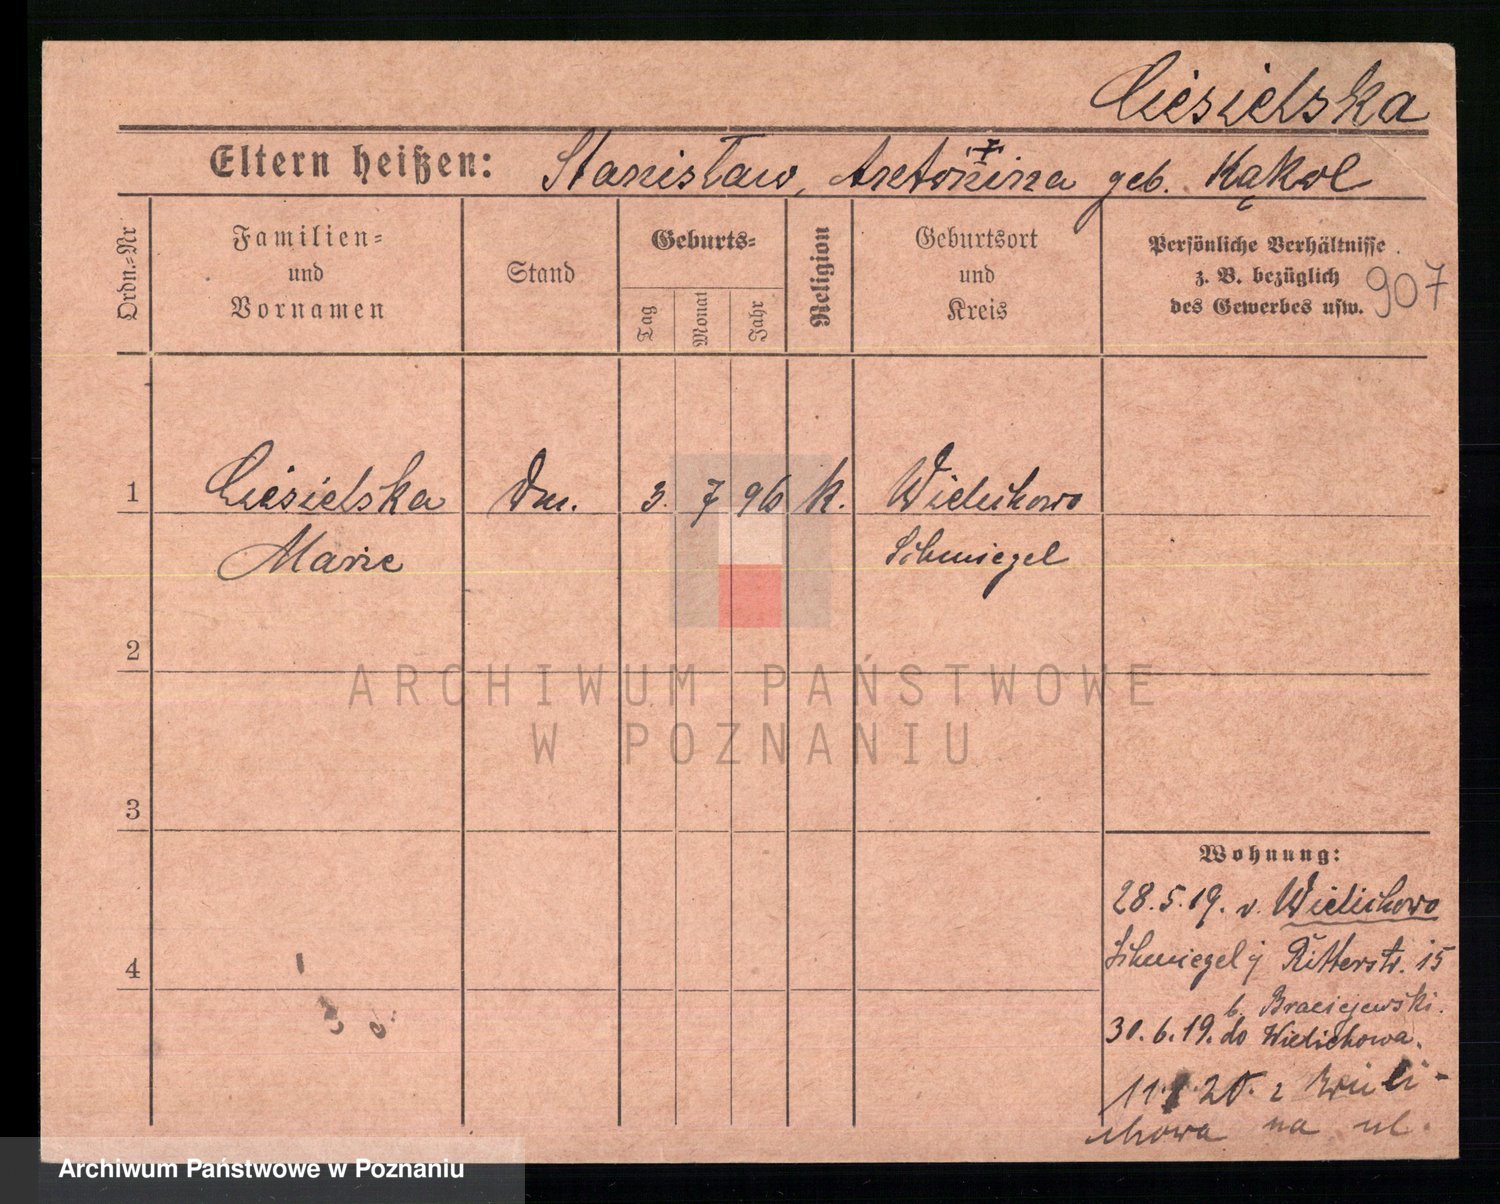 Ciesielska
Eltern heißen: Stanisław, Antonina geb. Kąkol
Ordn.=Nr
Familien=
und
Vornamen
Stand
Geburts=
Tag
Monat
Jahr
Religion
Geburtsort
und
Kreis
Persönliche Verhältnisse
z. B. bezüglich
des Gewerbes usw.
907
1 Ciesielska Dm. 3. 7 96 k. Wielichowo
Marie Schmiegel
2
3
4
Wohnung:
28.5.19. v. Wielichowo
Schmiegel Ritterstr. 15
b. Braciejewski.
30.6.19. do Wielichowa.
20. z Wieli-
chowa na ul.
ARCHIWUM PAŃSTWOWE
W POZNANIU
Archiwum Państwowe w Poznaniu